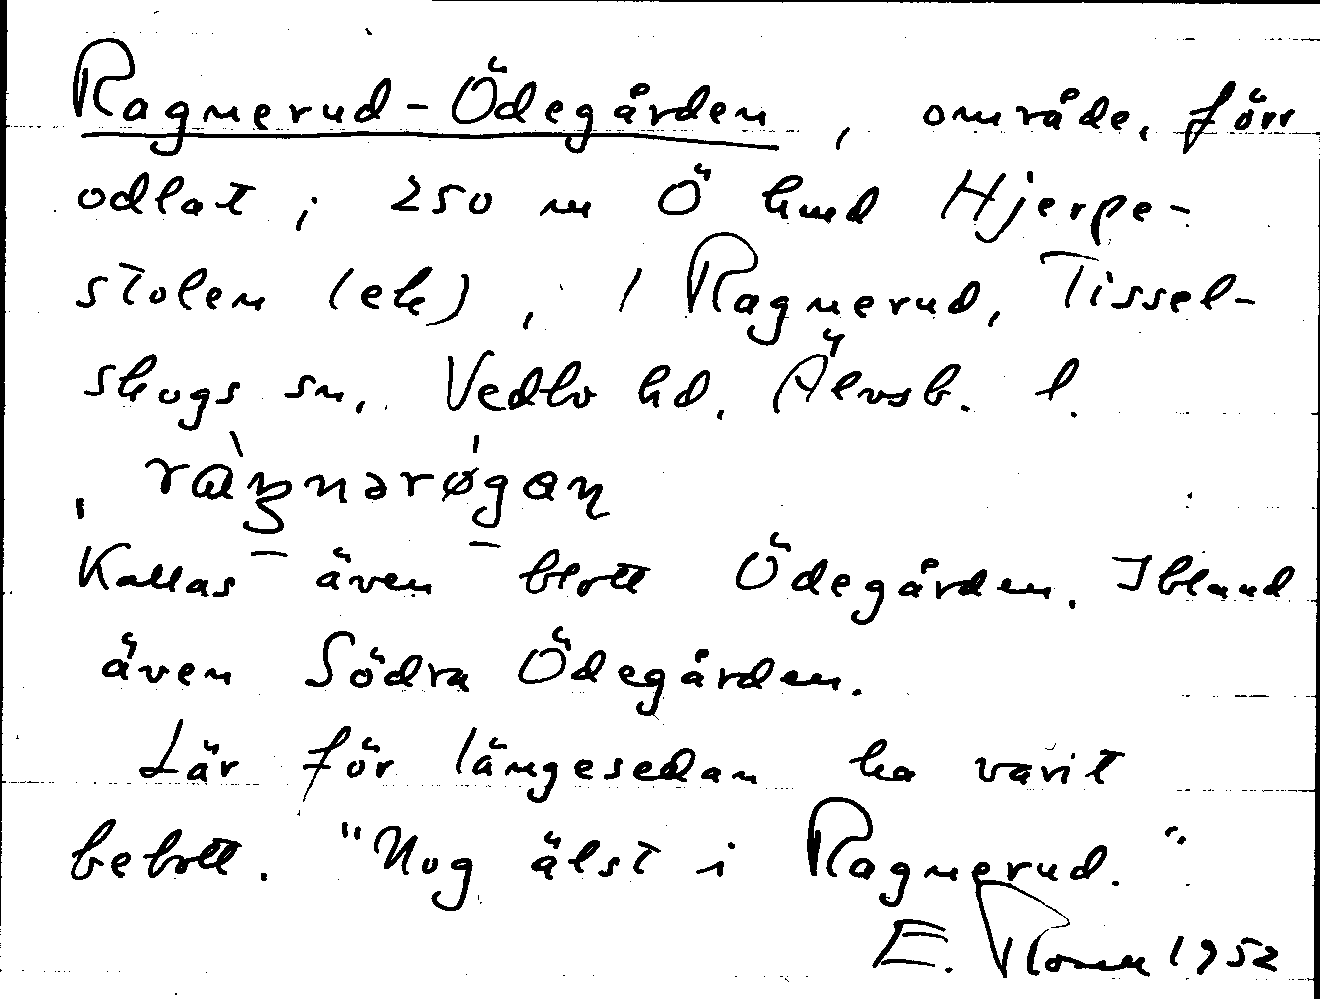 Ragnerud-Ödegården, område, förr
odlat, 250 m Ö kmd Hjerpe-
stolen (ek), i Ragnerud, Tissel-
skogs sn, Vedbo hd. Älvsb. l.
Kallas även blott Ödegården. Ibland
även Södra Ödegården.
Lär för längesedan ha varit
bebott. "Nog älst i Ragnerud."
E. Rosen 1952